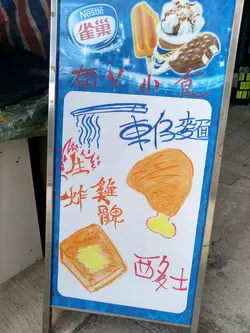 Nestlé
雀巢
南丫小食
車仔麵
生炸雞髀
西多士